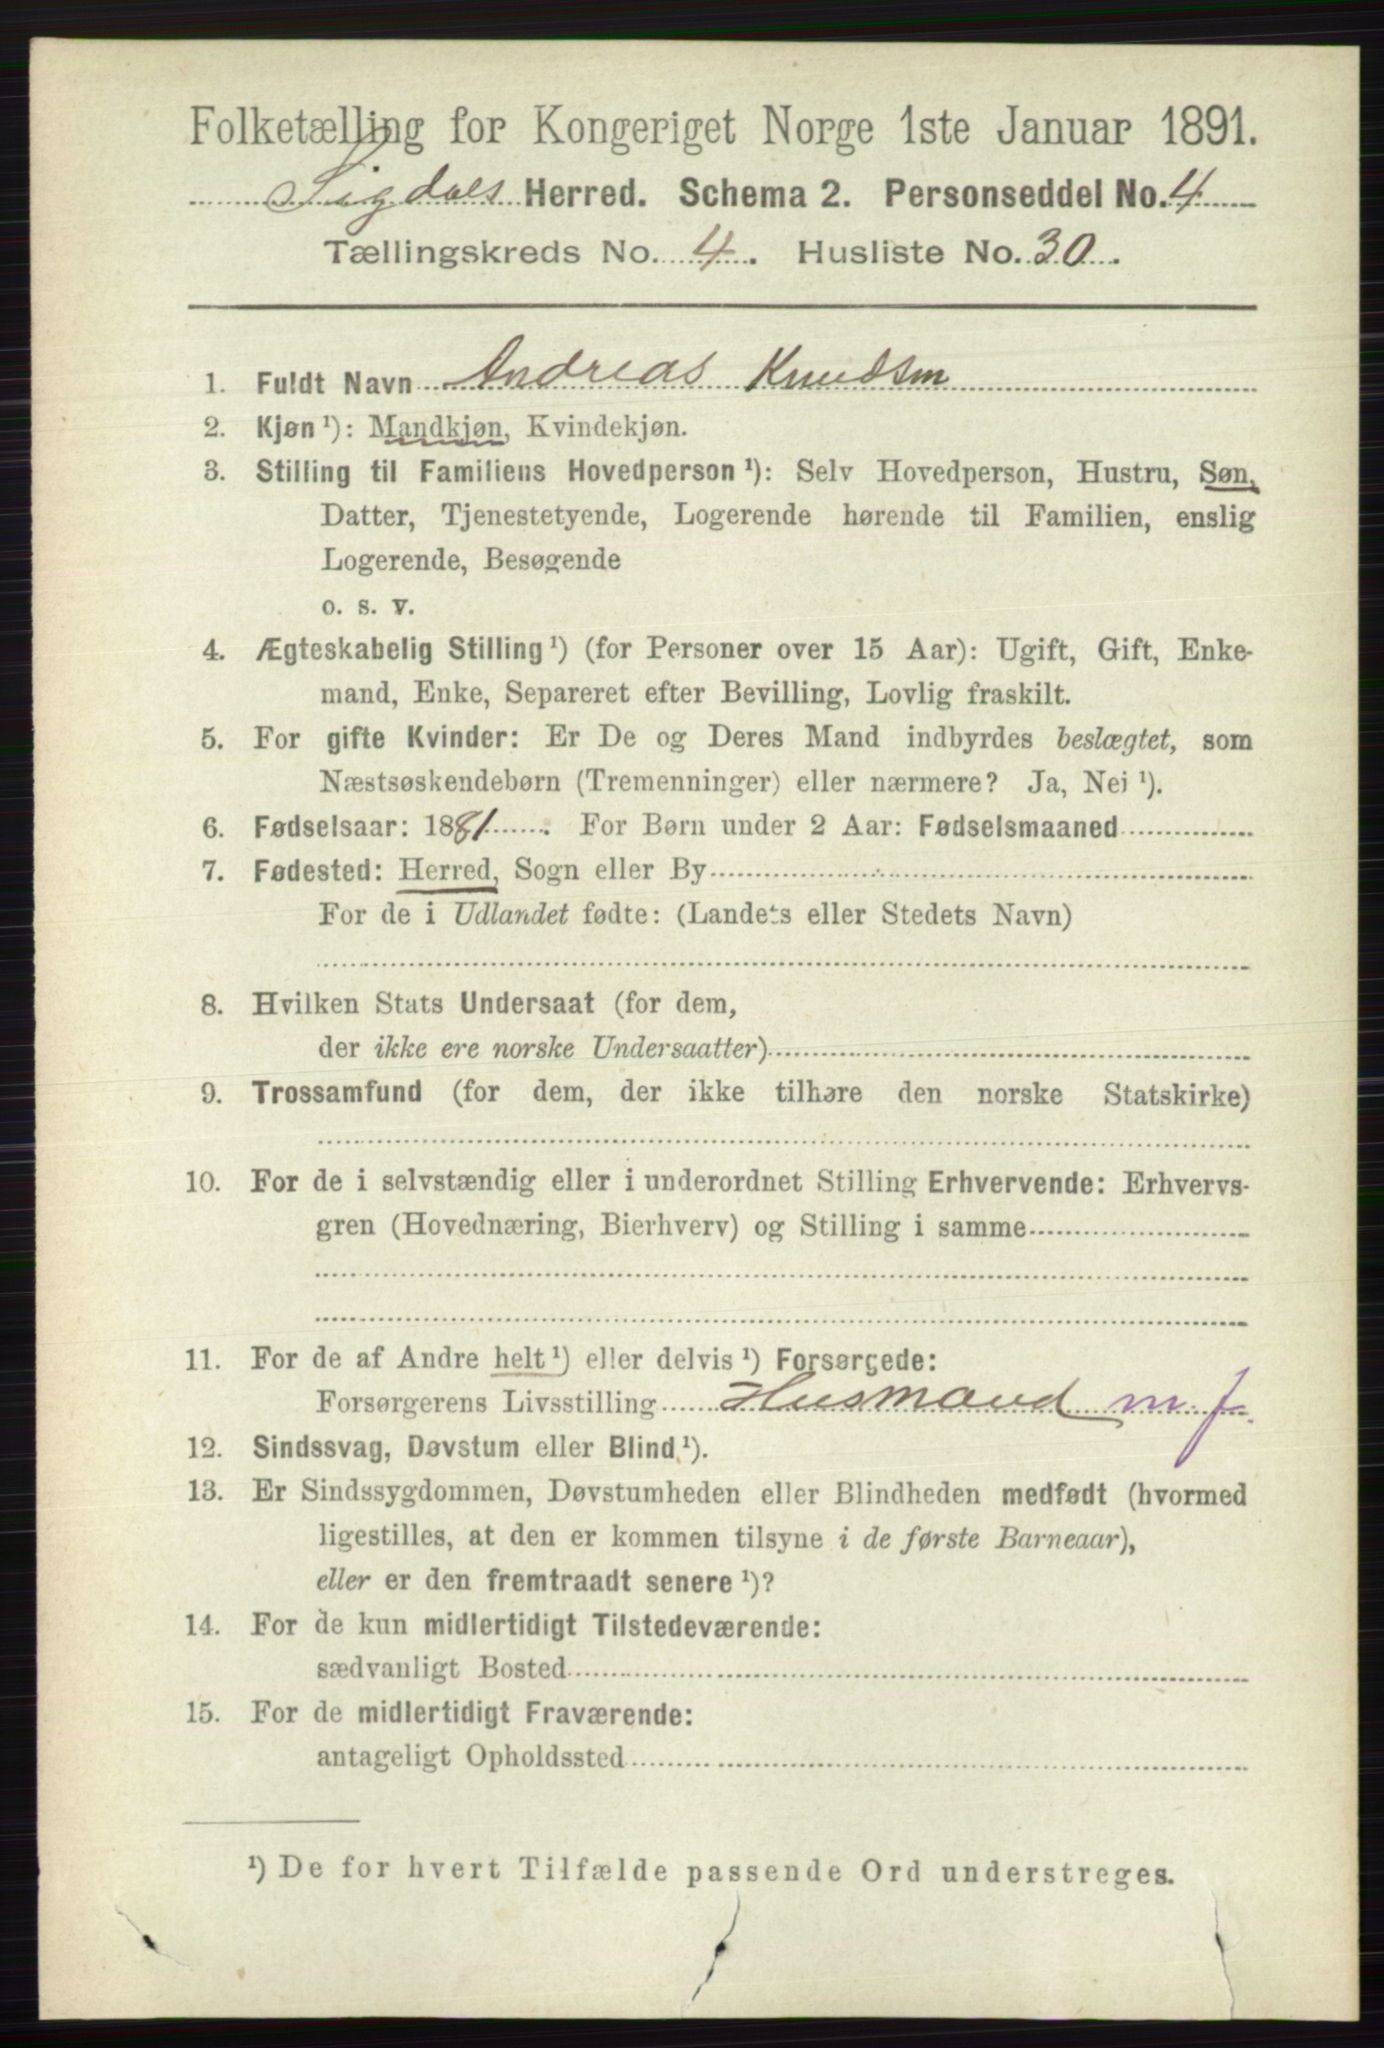 Folketælling for Kongeriget Norge 1ste Januar 1891.
Sigdals Herred. Schema 2. Personseddel No. 4
Tællingskreds No. 4. Husliste No. 30.
1. Fuldt Navn Andreas Knudsen
2. Kjøn ¹): Mandkjøn, Kvindekjøn.
3. Stilling til Familiens Hovedperson ¹): Selv Hovedperson, Hustru, Søn,
Datter, Tjenestetyende, Logerende hørende til Familien, enslig
Logerende, Besøgende
o. s. v.
4. Ægteskabelig Stilling ¹) (for Personer over 15 Aar): Ugift, Gift, Enke-
mand, Enke, Separeret efter Bevilling, Lovlig fraskilt.
5. For gifte Kvinder: Er De og Deres Mand indbyrdes beslægtet, som
Næstsøskendebørn (Tremenninger) eller nærmere? Ja, Nei ¹).
6. Fødselsaar: 1881. For Børn under 2 Aar: Fødselsmaaned
7. Fødested: Herred, Sogn eller By
For de i Udlandet fødte: (Landets eller Stedets Navn)
8. Hvilken Stats Undersaat (for dem,
der ikke ere norske Undersaatter)
9. Trossamfund (for dem, der ikke tilhøre den norske Statskirke)
10. For de i selvstændig eller i underordnet Stilling Erhvervende: Erhvervs-
gren (Hovednæring, Bierhverv) og Stilling i samme
11. For de af Andre helt ¹) eller delvis ¹) Forsørgede:
Forsørgerens Livsstilling Husmand m. j.
12. Sindssvag, Døvstum eller Blind ¹).
13. Er Sindssygdommen, Døvstumheden eller Blindheden medfødt (hvormed
ligestilles, at den er kommen tilsyne i de første Barneaar),
eller er den fremtraadt senere ¹)?
14. For de kun midlertidigt Tilstedeværende:
sædvanligt Bosted
15. For de midlertidigt Fraværende:
antageligt Opholdssted
¹) De for hvert Tilfælde passende Ord understreges.